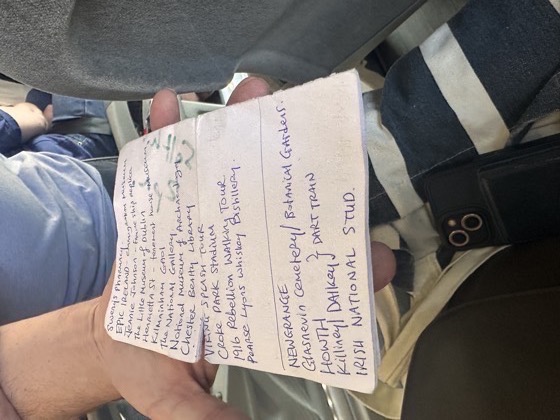 Sweny's Pharmacy
EPIC IRELAND - emigration museum
Jeanie Johnston - Famine ship replica
The Little Museum of Dublin
Henrietta St. house museum
Kilmainham Gaol
The National Gallery
National Museum of Archaeology
Chester Beatty Library
VIKING SPLASH TOUR
CROKE PARK STADIUM
1916 Rebellion Walking TOUR
Pearse Lyons Whiskey Distillery.
NEWGRANGE
Glasnevin Cemetery/Botanical Gardens.
HOWTH
Killiney/DALKEY } DART TRAIN
IRISH NATIONAL STUD.